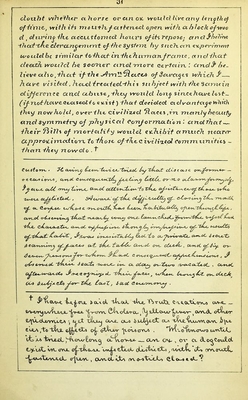 31
doubt whether a horse or an ox would live any length
of time, with its mouth fastened open with a block of woo
d, during the accustomed hours of its repose; and I believe
that the derangement of the system by such an experiment
would be similar to that in the human frame, and that
death would be sooner and more certain: and I be-
lieve also, that if the Amn Races of Savages which I
have visited, had treated this subject with the same in
difference and abuse, they would long since have lost
(if not have ceased to exist) that decided advantage which
they now hold, over the civilized Races, in manly beauty
and symmetry of physical conformation: and that
their Bills of mortality would exhibit a much nearer
approximation to those of the civilized communities
than they now do. †
custom. Having been twice tried by that disease on former
occasions, and consequently feeling little or no alarm for myself,
I gave all my time and attention to the of those who
were afflicted. Aware of the difficulty of closing the mouth
of a corpse whose mouth has been habitually open through life,
and observing that nearly every one launched from the vessel had
the character and expression through, of the mouth
of that habit, I was irresistably led to a private and secret
scanning of faces at the table and on deck, and of six or
seven persons for whom I had consequent apprehensions, I
observed their seats were in a day or two vacated, and
afterwards I recognized their faces, when brought on deck,
as subjects for the last, sad ceremony.
† I have before said that the Brute creations are
everywhere free from Cholera, Yellow fever, and other
epidemics; yet they are as subject as the human spe
cies, to the effects of other poisons. Who knows until
it is tried, how long a horse — an ox, or a dog could
exist, in one of those infective districts, with its mouth
fastened open, and its nostrils closed?